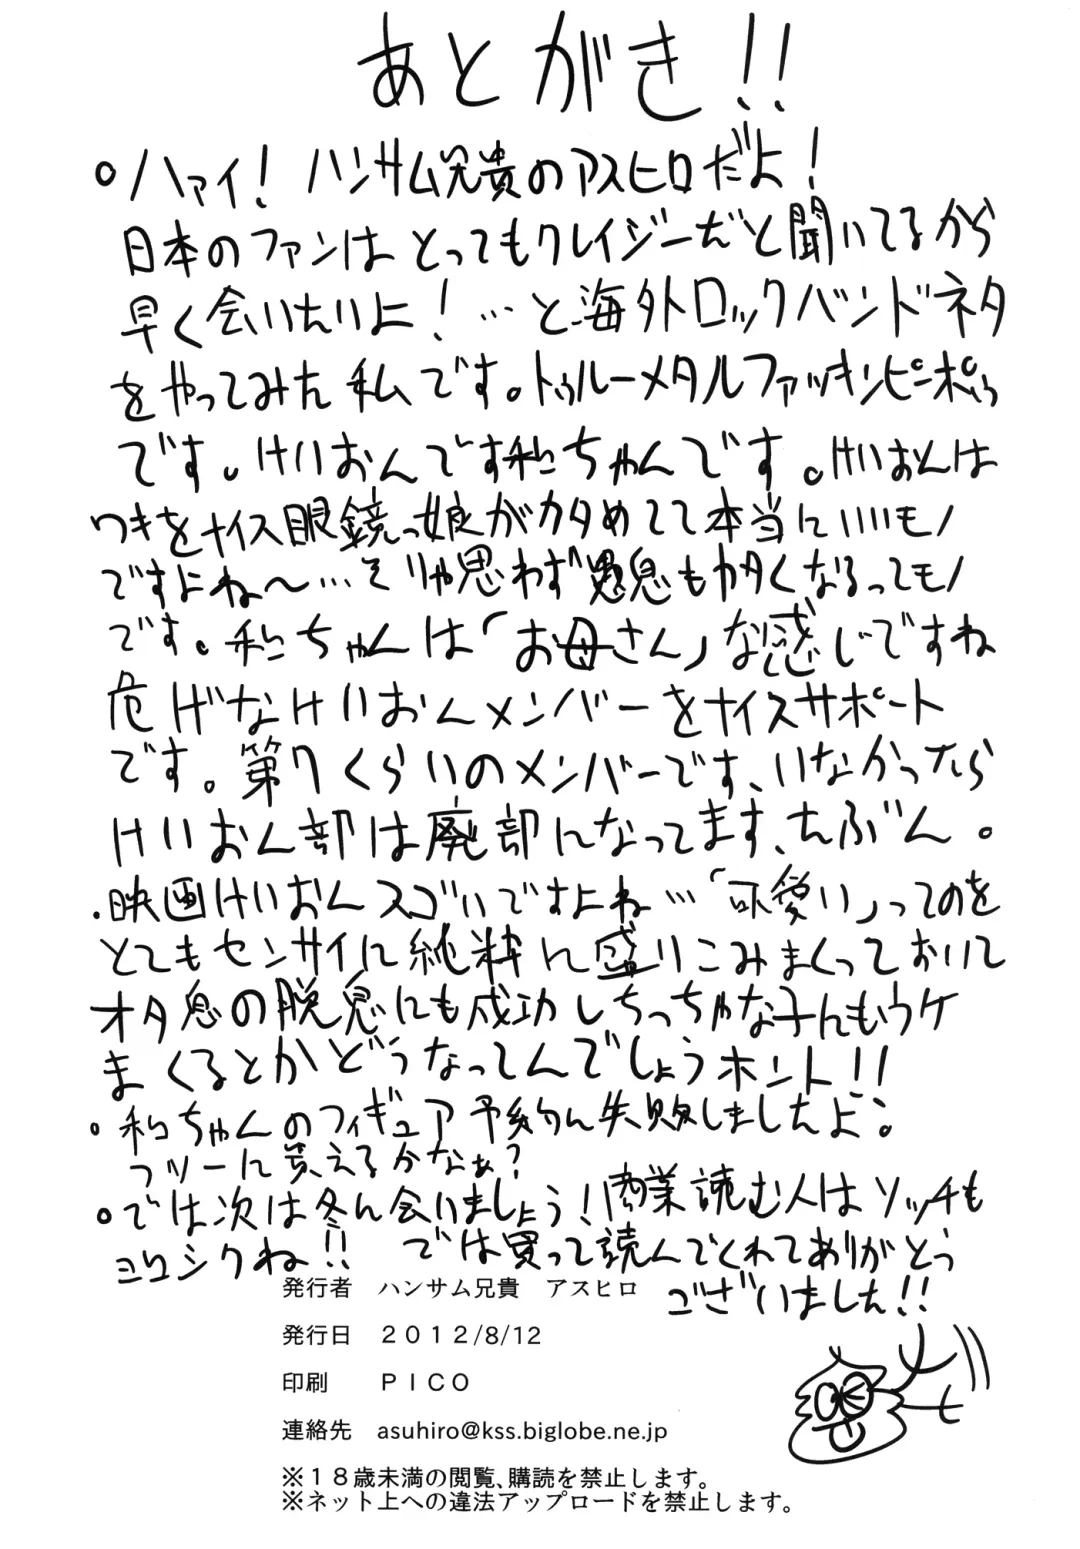 あとがき!!
。ハァイ！ハンサム兄貴のアスヒロだよ！
日本のファンはとってもクレイジーだと聞いてるから
早く会いたいよ！…と海外ロックバンドネタ
をやってみた私です。トゥルーメタルファッキンピンポぃぅ
です。けいおんです和ちゃんです。けいおんは
ワキをナイス眼鏡っ娘がカタめてて本当にいいモノ
ですよね〜…そりゃ思わず愚息もカタくなるってモノ
です。和ちゃんは「お母さん」な感じですね
危げなけいおんメンバーをナイスサポート
です。第7くらいのメンバーです、いなかったら
けいおん部は廃部になってます、たぶん。
.映画けいおんスゴいですよね…「可愛い」ってのを
とてもセンサイに純粋に盛りこみまくっておいて
オタ息の脱息にも成功しちっちゃな子にもウケ
まくるとかどうなってんでしょうホント!!
。和ちゃんのフィギュア予約に失敗しましたよ:
フツーに貰えるかなぁ?
。では次は冬に会いましょう!!商業読む人はソッチも
ヨロシクね!! では買って読んでくれてありがとう
ございました!!
発行者 ハンサム兄貴 アスヒロ
発行日 ２０１２/8/12
印刷 ＰＩＣＯ
連絡先 asuhiro@kss.biglobe.ne.jp
※１８歳未満の閲覧、購読を禁止します。
※ネット上への違法アップロードを禁止します。